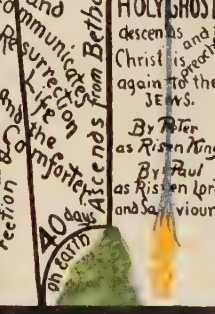 and
ommunicates
Resurrection
Life
and the
Comforter
rection
40 days
on earth
Ascends from Betha
HOLY GHOST
descends and
Christ is preach
again to the
JEWS.
By Peter
as Risen King
By Paul
as Risen Lord
and Saviour